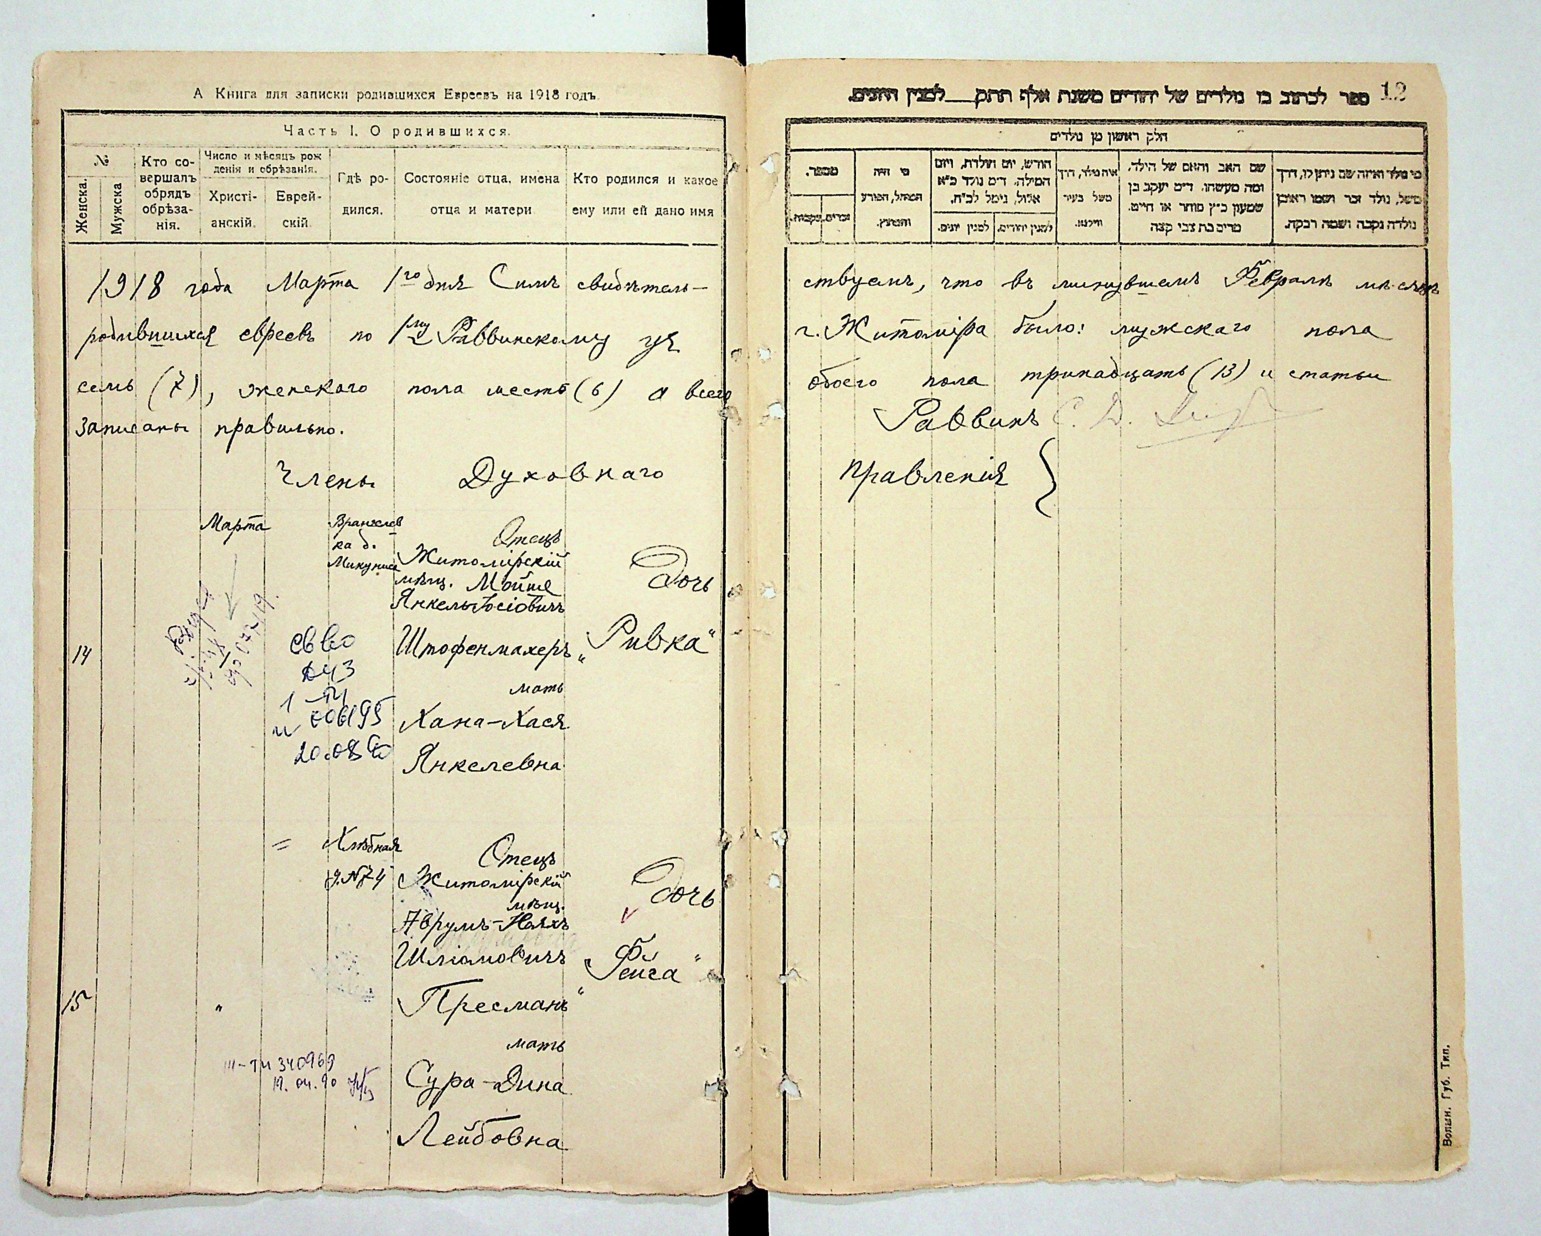 А Книга для записки родившихся Евреевъ на 1918 годъ.
Часть I. О родившихся.
№
Женска.
Мужска
Кто со-
вершалъ
обрядъ
обрѣза-
нія.
Число и мѣсяцъ рож
денія и обрѣзанія.
Христі-
анскій.
Еврей-
скій.
Гдѣ ро-
дился.
Состояніе отца, имена
отца и матери
Кто родился и какое
ему или ей дано имя
1918 года Марта 1го дня Симъ свидѣтель-
родившихся евреевъ по 1му Раввинскому уч
семь (7), женскаго пола шесть (6) а всего
записаны правильно.
Члены Духовнаго
Марта
Отецъ
Житомірскій
мѣщ. Мойше
Янкель Іосіовичъ
14
Штофенмахеръ
мать
Хана-Хася
Янкелевна
Дочь
„Ривка“
20.08.
Хлѣбная
д.№74
Отецъ
Житомірскій
мѣщ.
Аврумъ-Нояхъ
Шліомовичъ
15
"
Пресманъ
мать
Сура-Дина
Лейбовна
Дочь
„Фейга“
III-ТИ 340969
19.04.90
ספר לכתוב בו נולדים של יהודים משנת אלף תתק___ למנין היונים.
12
חלק ראשון מן נולדים
מספר.
זכרים.
נקבות.
מי היה
המוהל, הפורע
והמוצץ.
חודש, יום תולדת, ויום
המילה. ד״מ נולד כ״א
אלול, נימל לכ״ח.
למנין יהודים.
למנין יונים.
איה נולד, דרך
משל בעיר
ווילנא.
שם האב והאם של הילד,
ומה מעשהו. ד״מ יעקב בן
שמעון כ״ץ סוחר או חייט.
מרים בת צבי קצה
מי נולד ואיזה שם ניתן לו, דרך
משל, נולד זכר ושמו ראובן
נולדה נקבה ושמה רבקה.
ствуемъ, что въ минувшемъ Февралѣ мѣсяцѣ
г. Житоміра было: мужскаго пола
обоего пола тринадцать (13) и статьи
Раввинъ С. Д.
Правленія }
Волын. Губ. Тип.